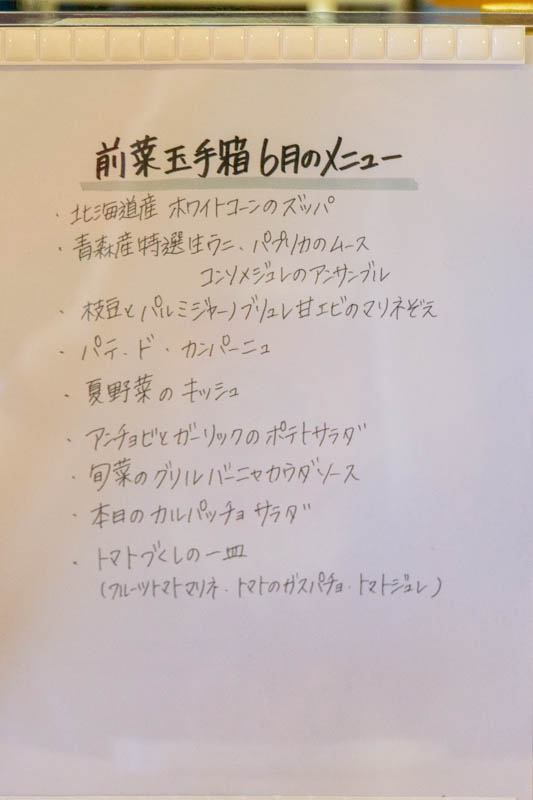 前菜玉手箱 6月のメニュー
・北海道産 ホワイトコーンのズッパ
・青森産特選生ウニ、パプリカのムース
コンソメジュレのアンサンブル
・枝豆とパルミジャーノブリュレ甘エビのマリネぞえ
・パテ・ド・カンパーニュ
・夏野菜のキッシュ
・アンチョビとガーリックのポテトサラダ
・旬菜のグリルバーニャカウダソース
・本日のカルパッチョサラダ
・トマトづくしの一皿
(フルーツトマトマリネ・トマトのガスパチョ・トマトジュレ)